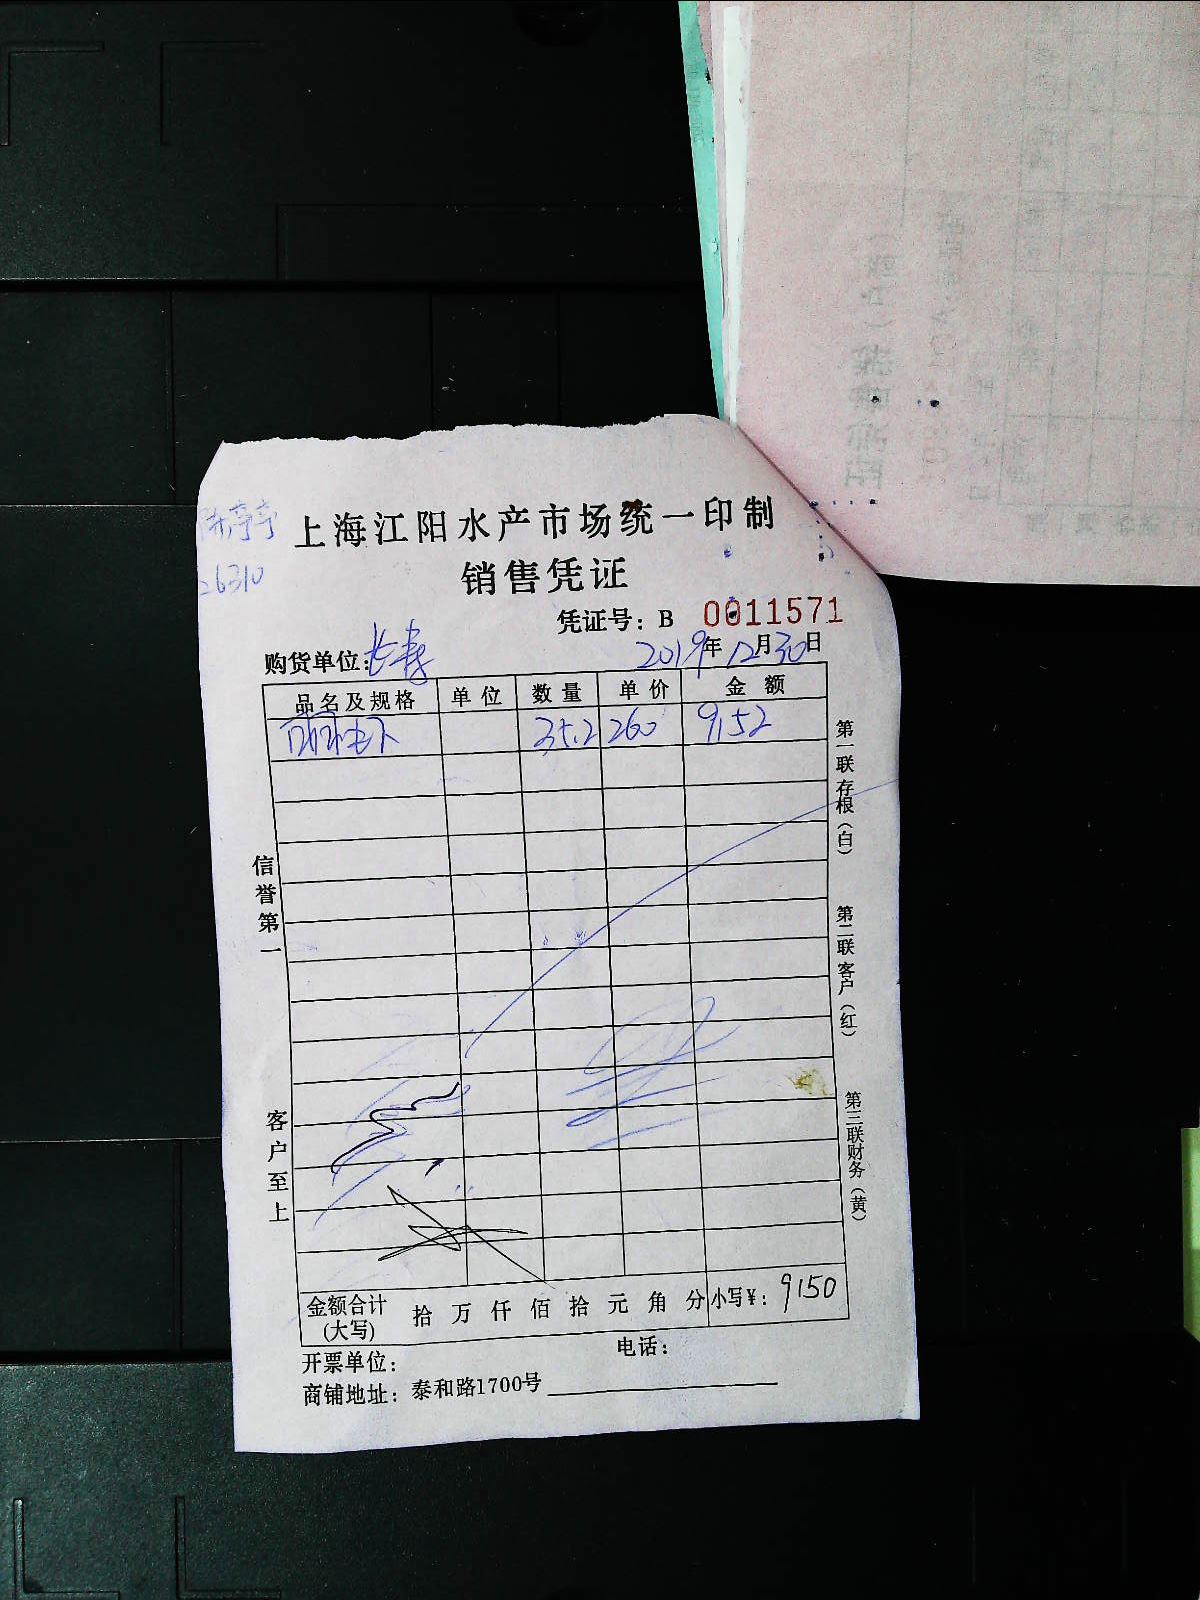 陈亭亭
26310
上海江阳水产市场统一印制
销售凭证
凭证号：B 0011571
购货单位：长寿 2019年12月30日
品名及规格 单位 数量 单价 金额
35.2 260 9152
信誉第一
客户至上
第一联存根（白）
第二联客户（红）
第三联财务（黄）
金额合计(大写) 拾 万 仟 佰 拾 元 角 分 小写¥：9150
开票单位： 电话：
商铺地址：泰和路1700号